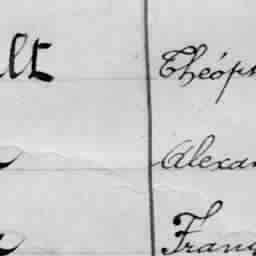 llt Théoph
Alexan
Franç